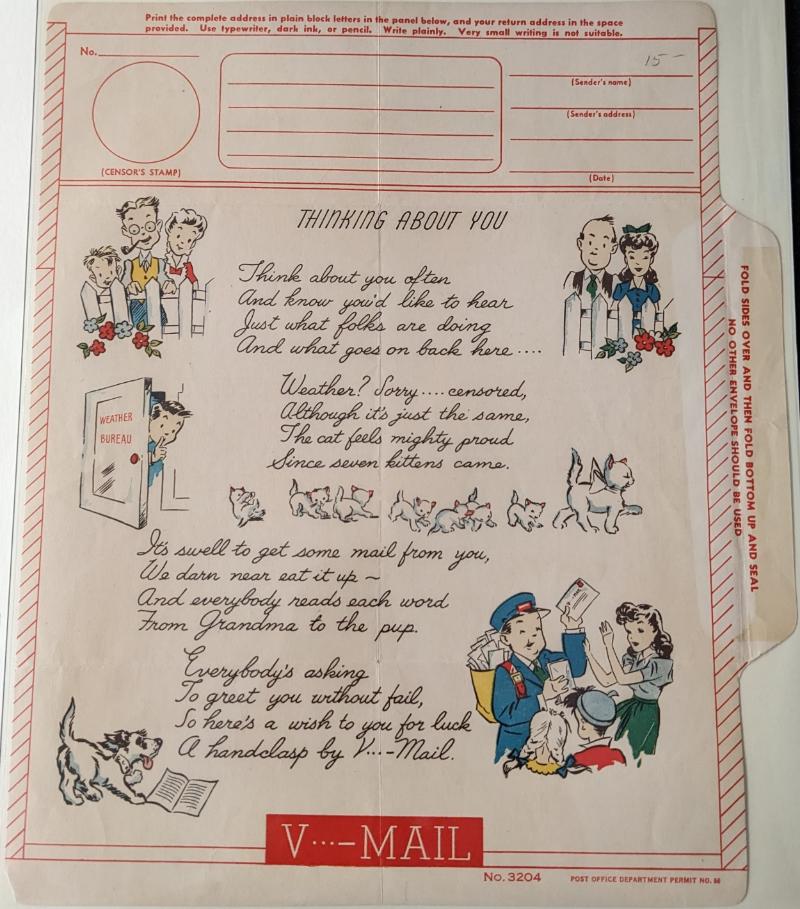 Print the complete address in plain block letters in the panel below, and your return address in the space
provided. Use typewriter, dark ink, or pencil. Write plainly. Very small writing is not suitable.
No.
15 -
(Sender's name)
(Sender's address)
(CENSOR'S STAMP)
(Date)
THINKING ABOUT YOU
Think about you often
And know you'd like to hear
Just what folks are doing
And what goes on back here....
WEATHER
BUREAU
Weather? Sorry.... censored,
Although it's just the same,
The cat feels mighty proud
Since seven kittens came.
It's swell to get some mail from you,
We darn near eat it up ~
And everybody reads each word
From Grandma to the pup.
Everybody's asking
To greet you without fail,
So here's a wish to you for luck
A handclasp by V...-Mail.
V...-MAIL
No. 3204
POST OFFICE DEPARTMENT PERMIT NO.
FOLD SIDES OVER AND THEN FOLD BOTTOM UP AND SEAL
NO OTHER ENVELOPE SHOULD BE USED